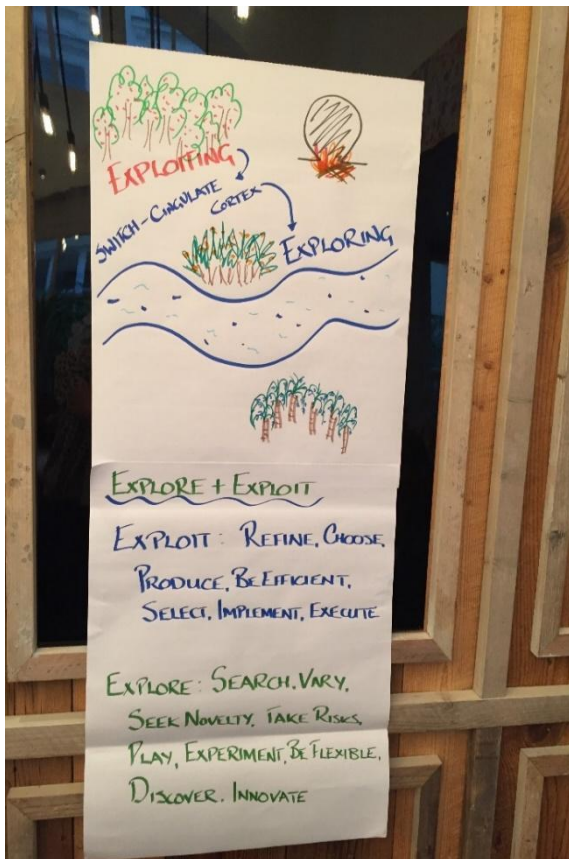 EXPLOITING
SWITCH - CINGULATE
CORTEX
EXPLORING
EXPLORE + EXPLOIT
EXPLOIT: REFINE, CHOOSE,
PRODUCE, BE EFFICIENT,
SELECT, IMPLEMENT, EXECUTE
EXPLORE: SEARCH, VARY,
SEEK NOVELTY, TAKE RISKS,
PLAY, EXPERIMENT, BE FLEXIBLE,
DISCOVER, INNOVATE